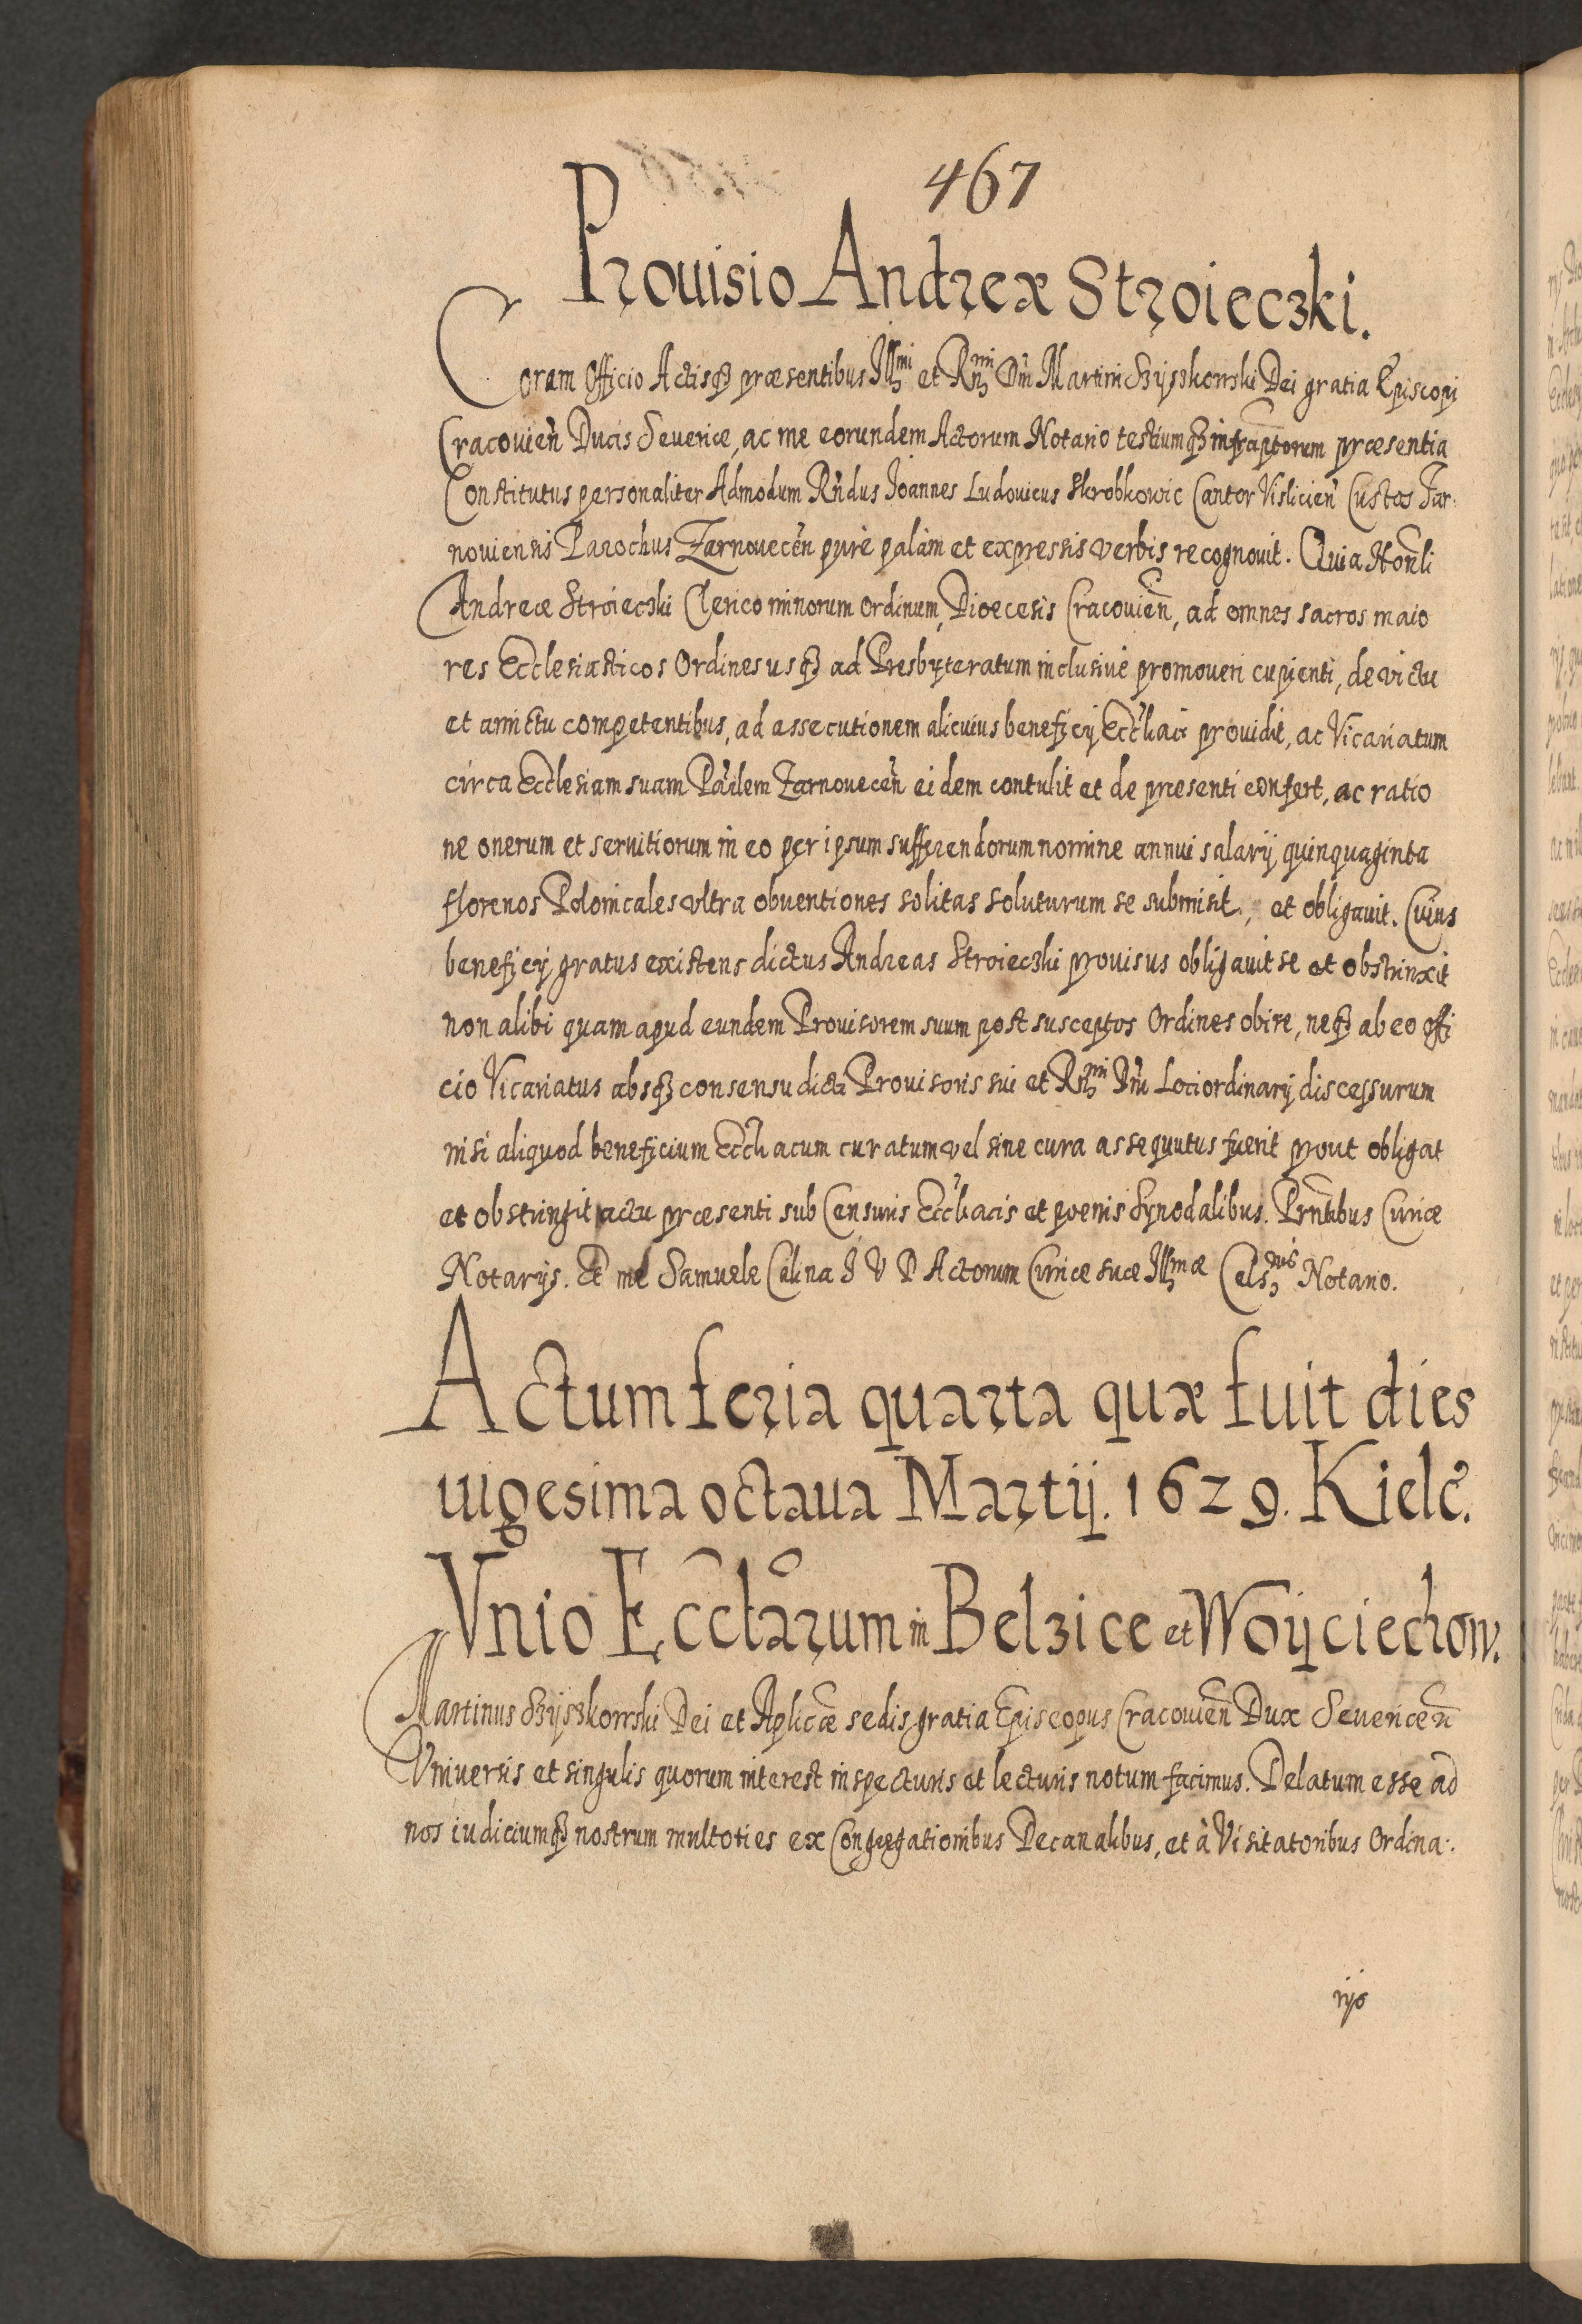 467
Prouisio Andreæ Stroieczki.
Coram Officio Actisqꝫ præsentibus Illꝫmi et Rnꝫmi Dni Martini Szyszkowski Dei gratia Episcopi
Cracovien̄ Ducis Severiæ, ac me eorundem Actorum Notario testiumqꝫ infraptorum præsentia
Constitutus personaliter Admodum Rn̄dus Ioannes Ludovicus Skrobkowic Cantor Vislicien̄ Custos Tar
noviensis Parochus Zarnovecen̄ purè palàm et expressis verbis recognovit. Quia Hon̄li
Andreæ Stroieczki Clerico minorum ordinum, Dioecesis Cracovien̄, ad omnes sacros maio
res Ecclesiasticos Ordines usqꝫ ad Presbyteratum inclusivè promoveri cupienti, de victu
et amictu competentibus, ad assecutionem alicuius beneficij Eccl̄iaci providit, ac Vicariatum
circa Ecclesiam suam Pālem Zarnovecen̄ eidem contulit et de præsenti confert, ac ratio
ne onerum et servitiorum in eo per ipsum sufferendorum nomine annui salarij quinquaginta
florenos Polonicales ultra obventiones solitas soluturum se submisit, et obligavit. Cuius
beneficij gratus existens dictus Andreas Stroieczki provisus obligavit se et obstrinxit
non alibi quam apud eundem Provisorem suum post susceptos Ordines obire, neqꝫ ab eo offi
cio Vicariatus absqꝫ consensu dicti Provisoris sui et Rnꝫmi Dn̄i Loci ordinarij discessurum
nisi aliquod beneficium Eccl̄iacum curatum vel sine cura assequutus fuerit prout obligat
et obstringit actu præsenti sub Censuris Eccl̄iacis et poenis Synodalibus. Prn̄tibus Curiæ
Notarijs. Et me Samuele Celina I V D Actorum Curiæ suæ Illꝫmæ Celsꝫnis Notario.
Actum feria quarta quæ fuit dies
uigesima octaua Martij. 1629. Kielc̄.
Vnio Eccl̄arum in Belzice et Woyciechow.
Martinus Szyszkowski Dei et Aplicæ sedis gratia Episcopus Cracovien̄ Dux Severiæn̄
Vniversis et singulis quorum interest inspecturis et lecturis notum facimus. Delatum esse ad
nos iudiciumqꝫ nostrum multoties ex Congregationibus Decanalibus, et à Visitatoribus Ordina:
rijs